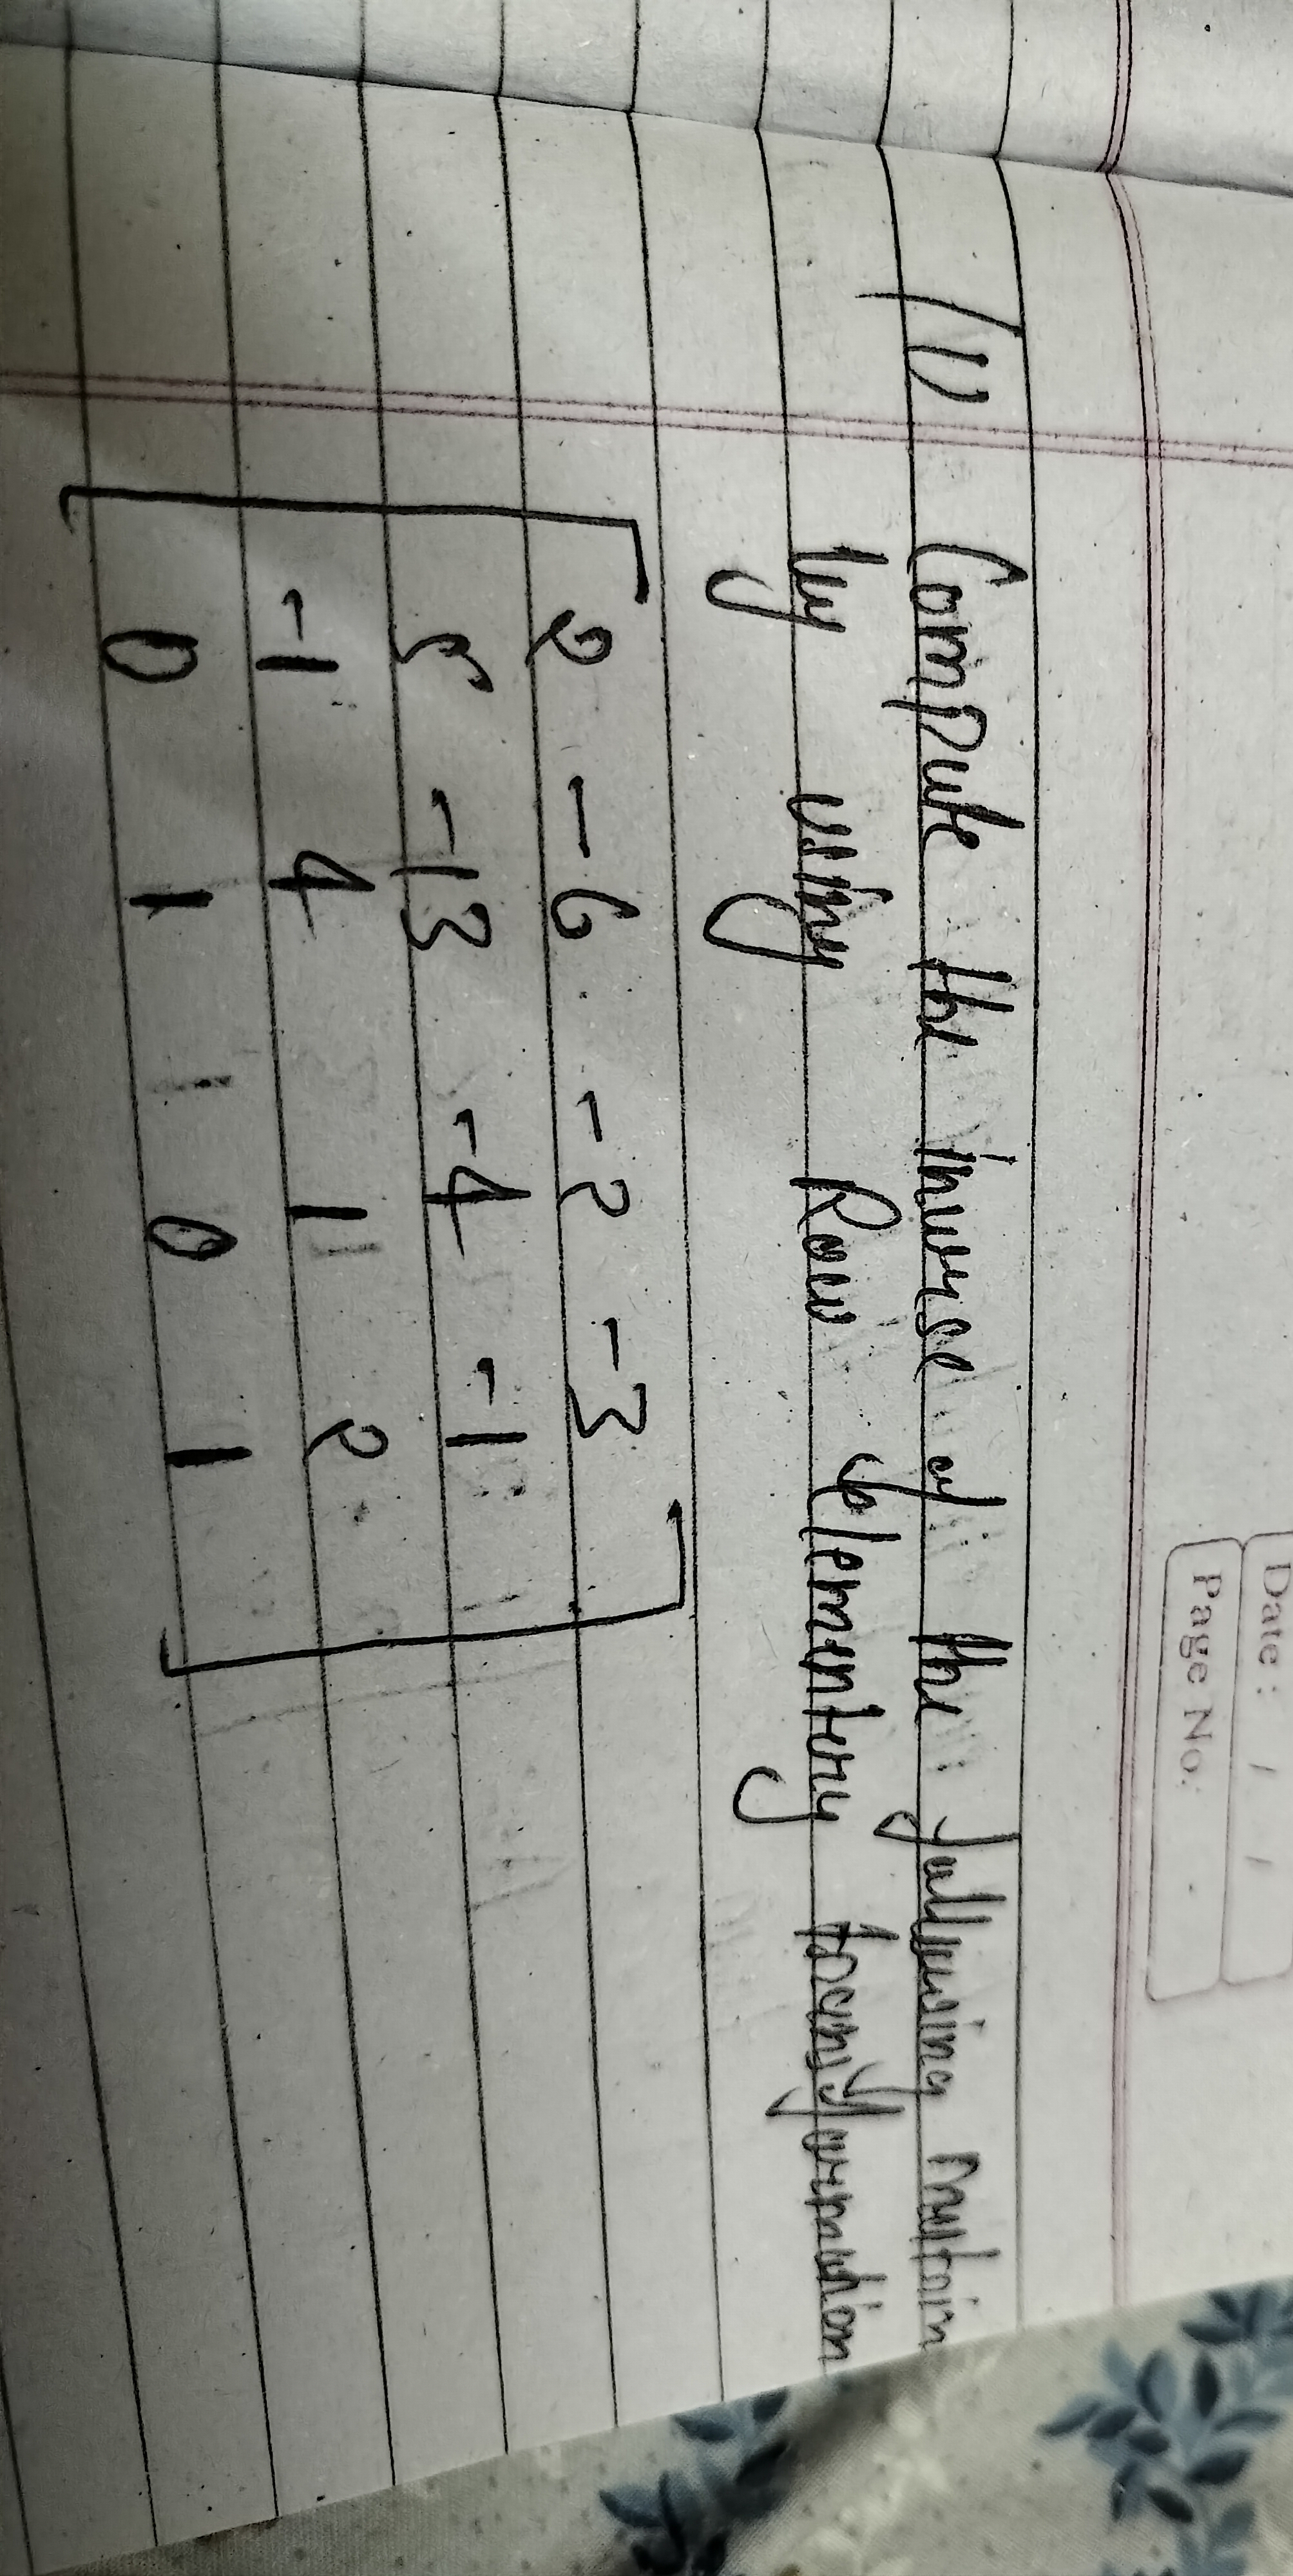 Date : / /
Page No:
(ii) Compute the inverse of the following matrix
by using Row elementery transformation
2 -6 -2 -3
5 -13 -4 -1
-1 4 1 2
0 1 0 1